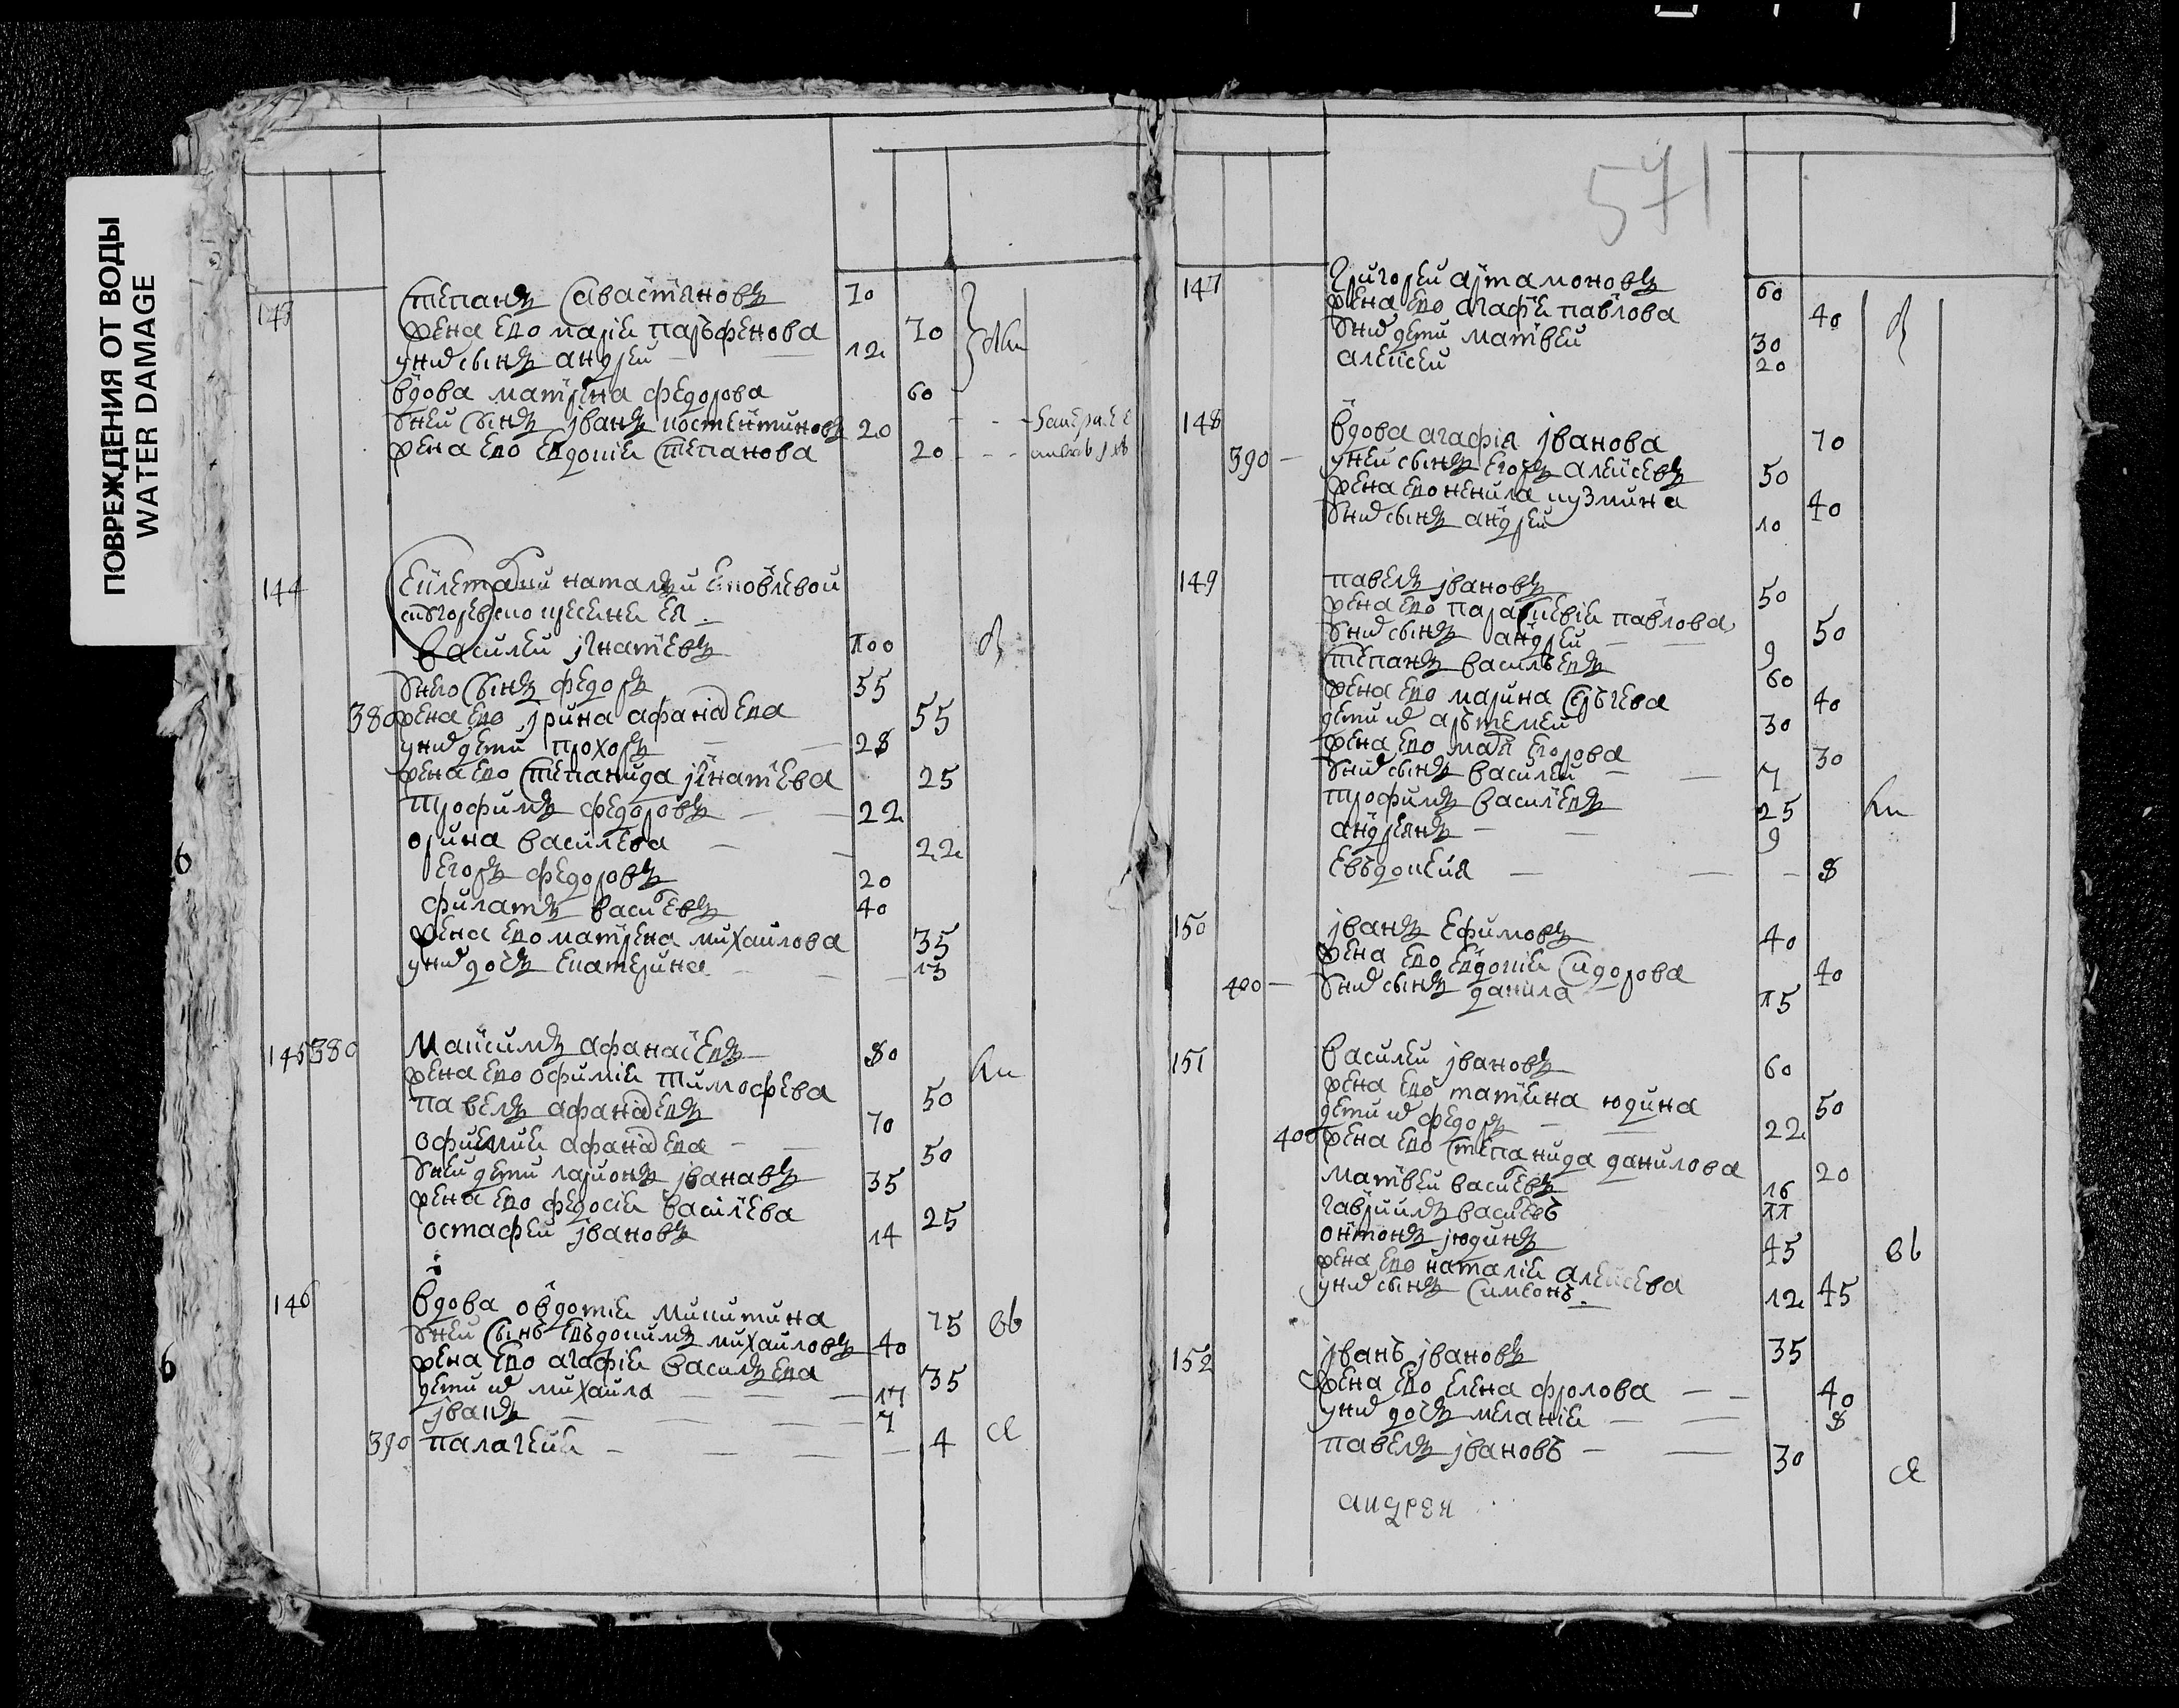 ПОВРЕЖДЕНИЯ ОТ ВОДЫ
WATER DAMAGE
571
143 Степанъ Савастяновъ 70
жена ево марiя паръфенова 70
у нихъ сынъ андрей 12
вдова матрена федорова 60
у ней сынъ iванъ костентиновъ 20
жена ево евдокiя степанова 20
144 наталъи ековлевой
василей iгнатiевъ 100
у него сынъ федоръ 55
380 жена ево iрина афанасева 55
у нихъ дети прохоръ 28
жена ево степанида iгнатiева 25
трофимъ федоровъ 22
орина василева 22
егоръ федоровъ 20
филатъ василевъ 40
жена ево матрена михаилова 35
у нихъ дочь екатерина 13
145 380 Максимъ афанасевъ 80
жена ево офимiя тимофева 50
павелъ афанасевъ 70
офимия афанасева 50
у ней дети ларионъ iвановъ 35
жена ево федосiя василева 25
остафей iвановъ 14
146 вдова овдотiя микитина 75
у ней сынъ евъдокимъ михаиловъ 40
жена ево агафiя василъева 35
дети ихъ михаила 17
iванъ 7
390 палагеия 4
147 Григорей артамоновъ 60
жена ево агафiя павлова 40
у нихъ дети матвей 30
алексей 20
148 вдова агафiя iванова 70
390 у ней сынъ егоръ алексевъ 50
жена ево ненила кузмина 40
у нихъ сынъ андрей 10
149 павелъ iвановъ 50
жена ево парасковiя павлова 50
у нихъ сынъ андрей 9
степанъ василъевъ 60
жена ево марина сергева 40
дети ихъ арътемей 30
жена ево егорова 30
у нихъ сынъ василей 7
трофимъ василевъ 25
андреянъ 9
евъдокея 8
150 iванъ ефимовъ 40
жена ево евдокiя сидорова 40
400 у нихъ сынъ данила 15
151 василей iвановъ 60
жена ево татiяна юдина 50
дети ихъ федоръ 22
400 жена ево степанида данилова 20
матвей василевъ 16
гаврiилъ василевъ 11
онтонъ юдинъ 45
жена ево наталiя алексева 45
у нихъ сынъ симеонъ 12
152 iванъ iвановъ 35
жена ево елена фролова 40
у нихъ дочь меланiя 8
павелъ iвановъ 30
андрей